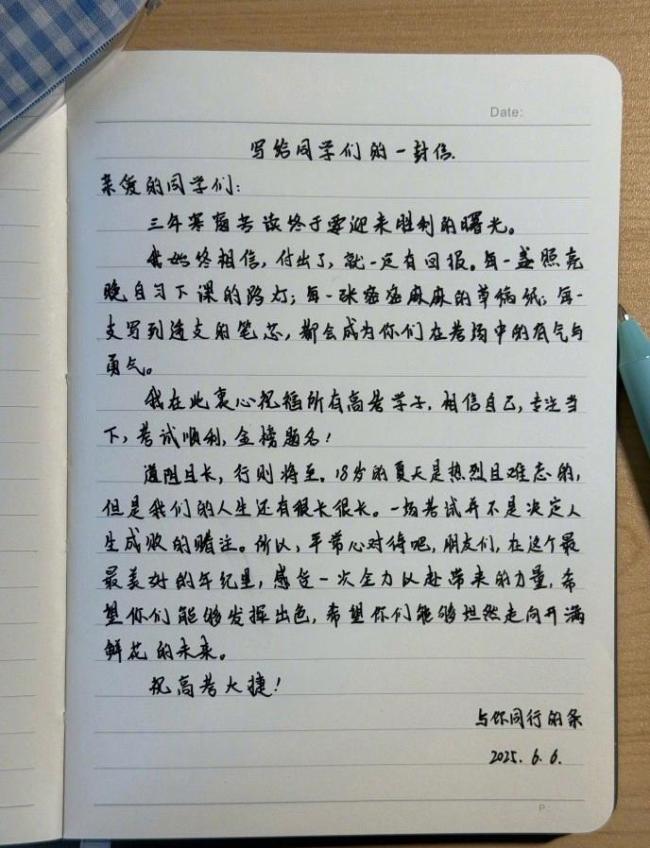 Date:
写给同学们的一封信.
亲爱的同学们:
三年寒窗苦读终于要迎来胜利的曙光。
我始终相信,付出了,就一定有回报。每一盏照亮
晚自习下课的路灯;每一张密密麻麻的草稿纸;每一
支写到透支的笔芯,都会成为你们在考场中的底气与
勇气。
我在此衷心祝福所有高考学子,相信自己,专注当
下,考试顺利,金榜题名!
道阻且长,行则将至。18岁的夏天是热烈且难忘的,
但是我们的人生还有很长很长。一场考试并不是决定人
生成败的赌注。所以,平常心对待吧,朋友们,在这个最
最美好的年纪里,感受一次全力以赴带来的力量,希
望你们能够发挥出色,希望你们能够坦然走向开满
鲜花的未来。
祝高考大捷!
与你同行的
2025.6.6.
P.